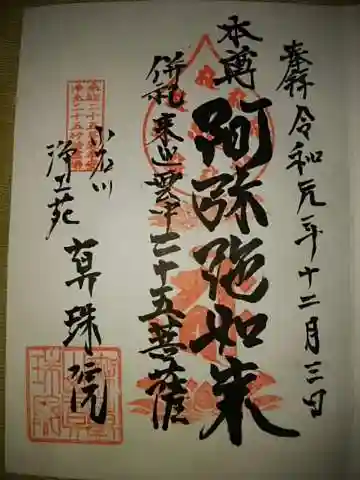 奉拝 令和元年十二月三日
本尊 阿弥陀如来
併礼 来迎雲中二十五菩薩
小石川
浄土苑
真珠院